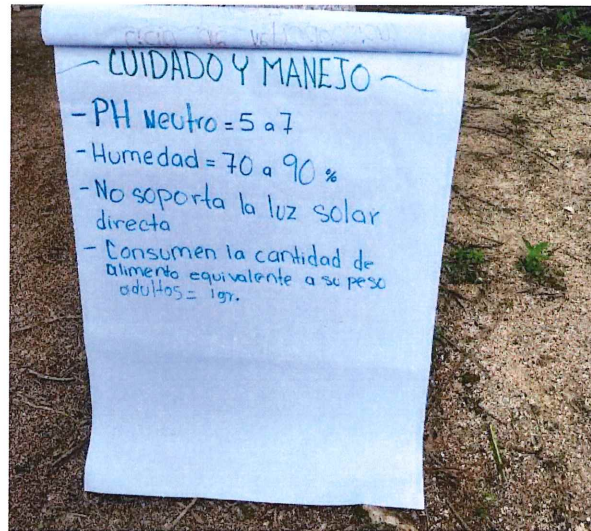 CUIDADO Y MANEJO
- PH Neutro = 5 a 7
- Humedad = 70 a 90 %
- No soporta la luz solar
directa
- Consumen la cantidad de
alimento equivalente a su peso
adultos = 1gr.